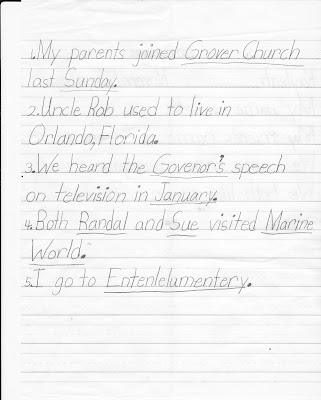 1.My parents joined Grover Church
last Sunday.
2.Uncle Rob used to live in
Orlando, Florida.
3.We heard the Govenor's speech
on television in January.
4.Both Randal and Sue visited Marine
World.
5.I go to Entenlelumentery.